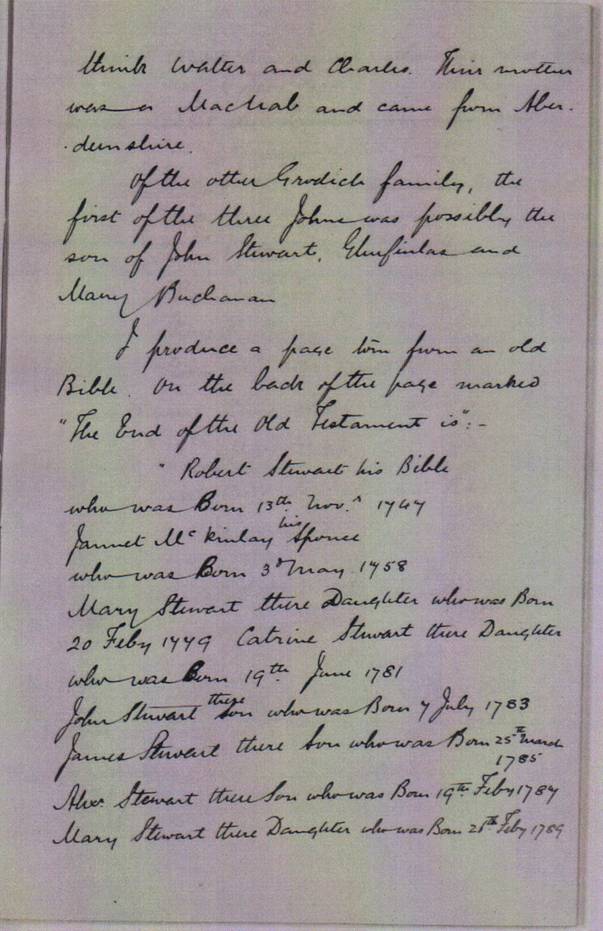 think Walter and Charles. Their mother
was a MacNab and came from Aber-
-deenshire.
Of the other Grodich family, the
first of the three Johns was possibly the
son of John Stewart, Glenfinlas and
Mary Buchanan
I produce a page torn from an old
Bible. On the back of the page marked
"The End of the Old Testament is":-
"Robert Stewart his Bible
who was Born 13th Novr 1747
Jannet McKinlay his Spouce
who was Born 3d May 1758
Mary Stewart there Daughter who was Born
20 Feby 1779 Catrine Stewart there Daughter
who was Born 19th June 1781
John Stewart there Son who was Born 7 July 1783
James Stewart there Son who was Born 25th March
1785
Alexr Stewart there Son who was Born 19th Feby 1787
Mary Stewart there Daughter who was Born Feby 1789